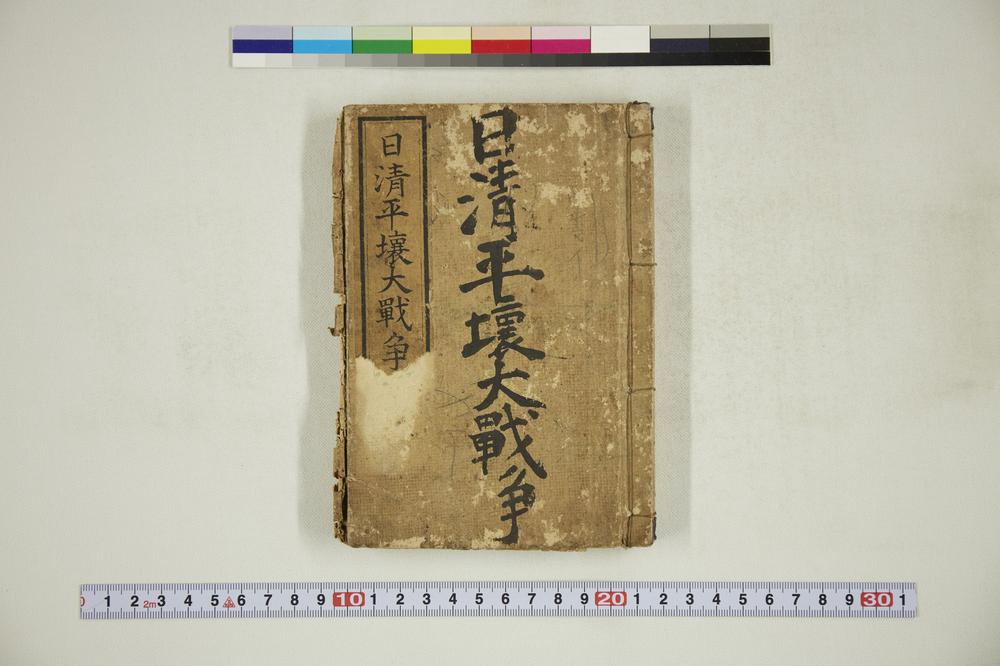 日清平壤大戰争
日清平壤大戰争
1 2 2m 3 4 5 6 7 8 9 10 1 2 3 4 5 6 7 8 9 20 1 2 3 4 5 6 7 8 9 30 1